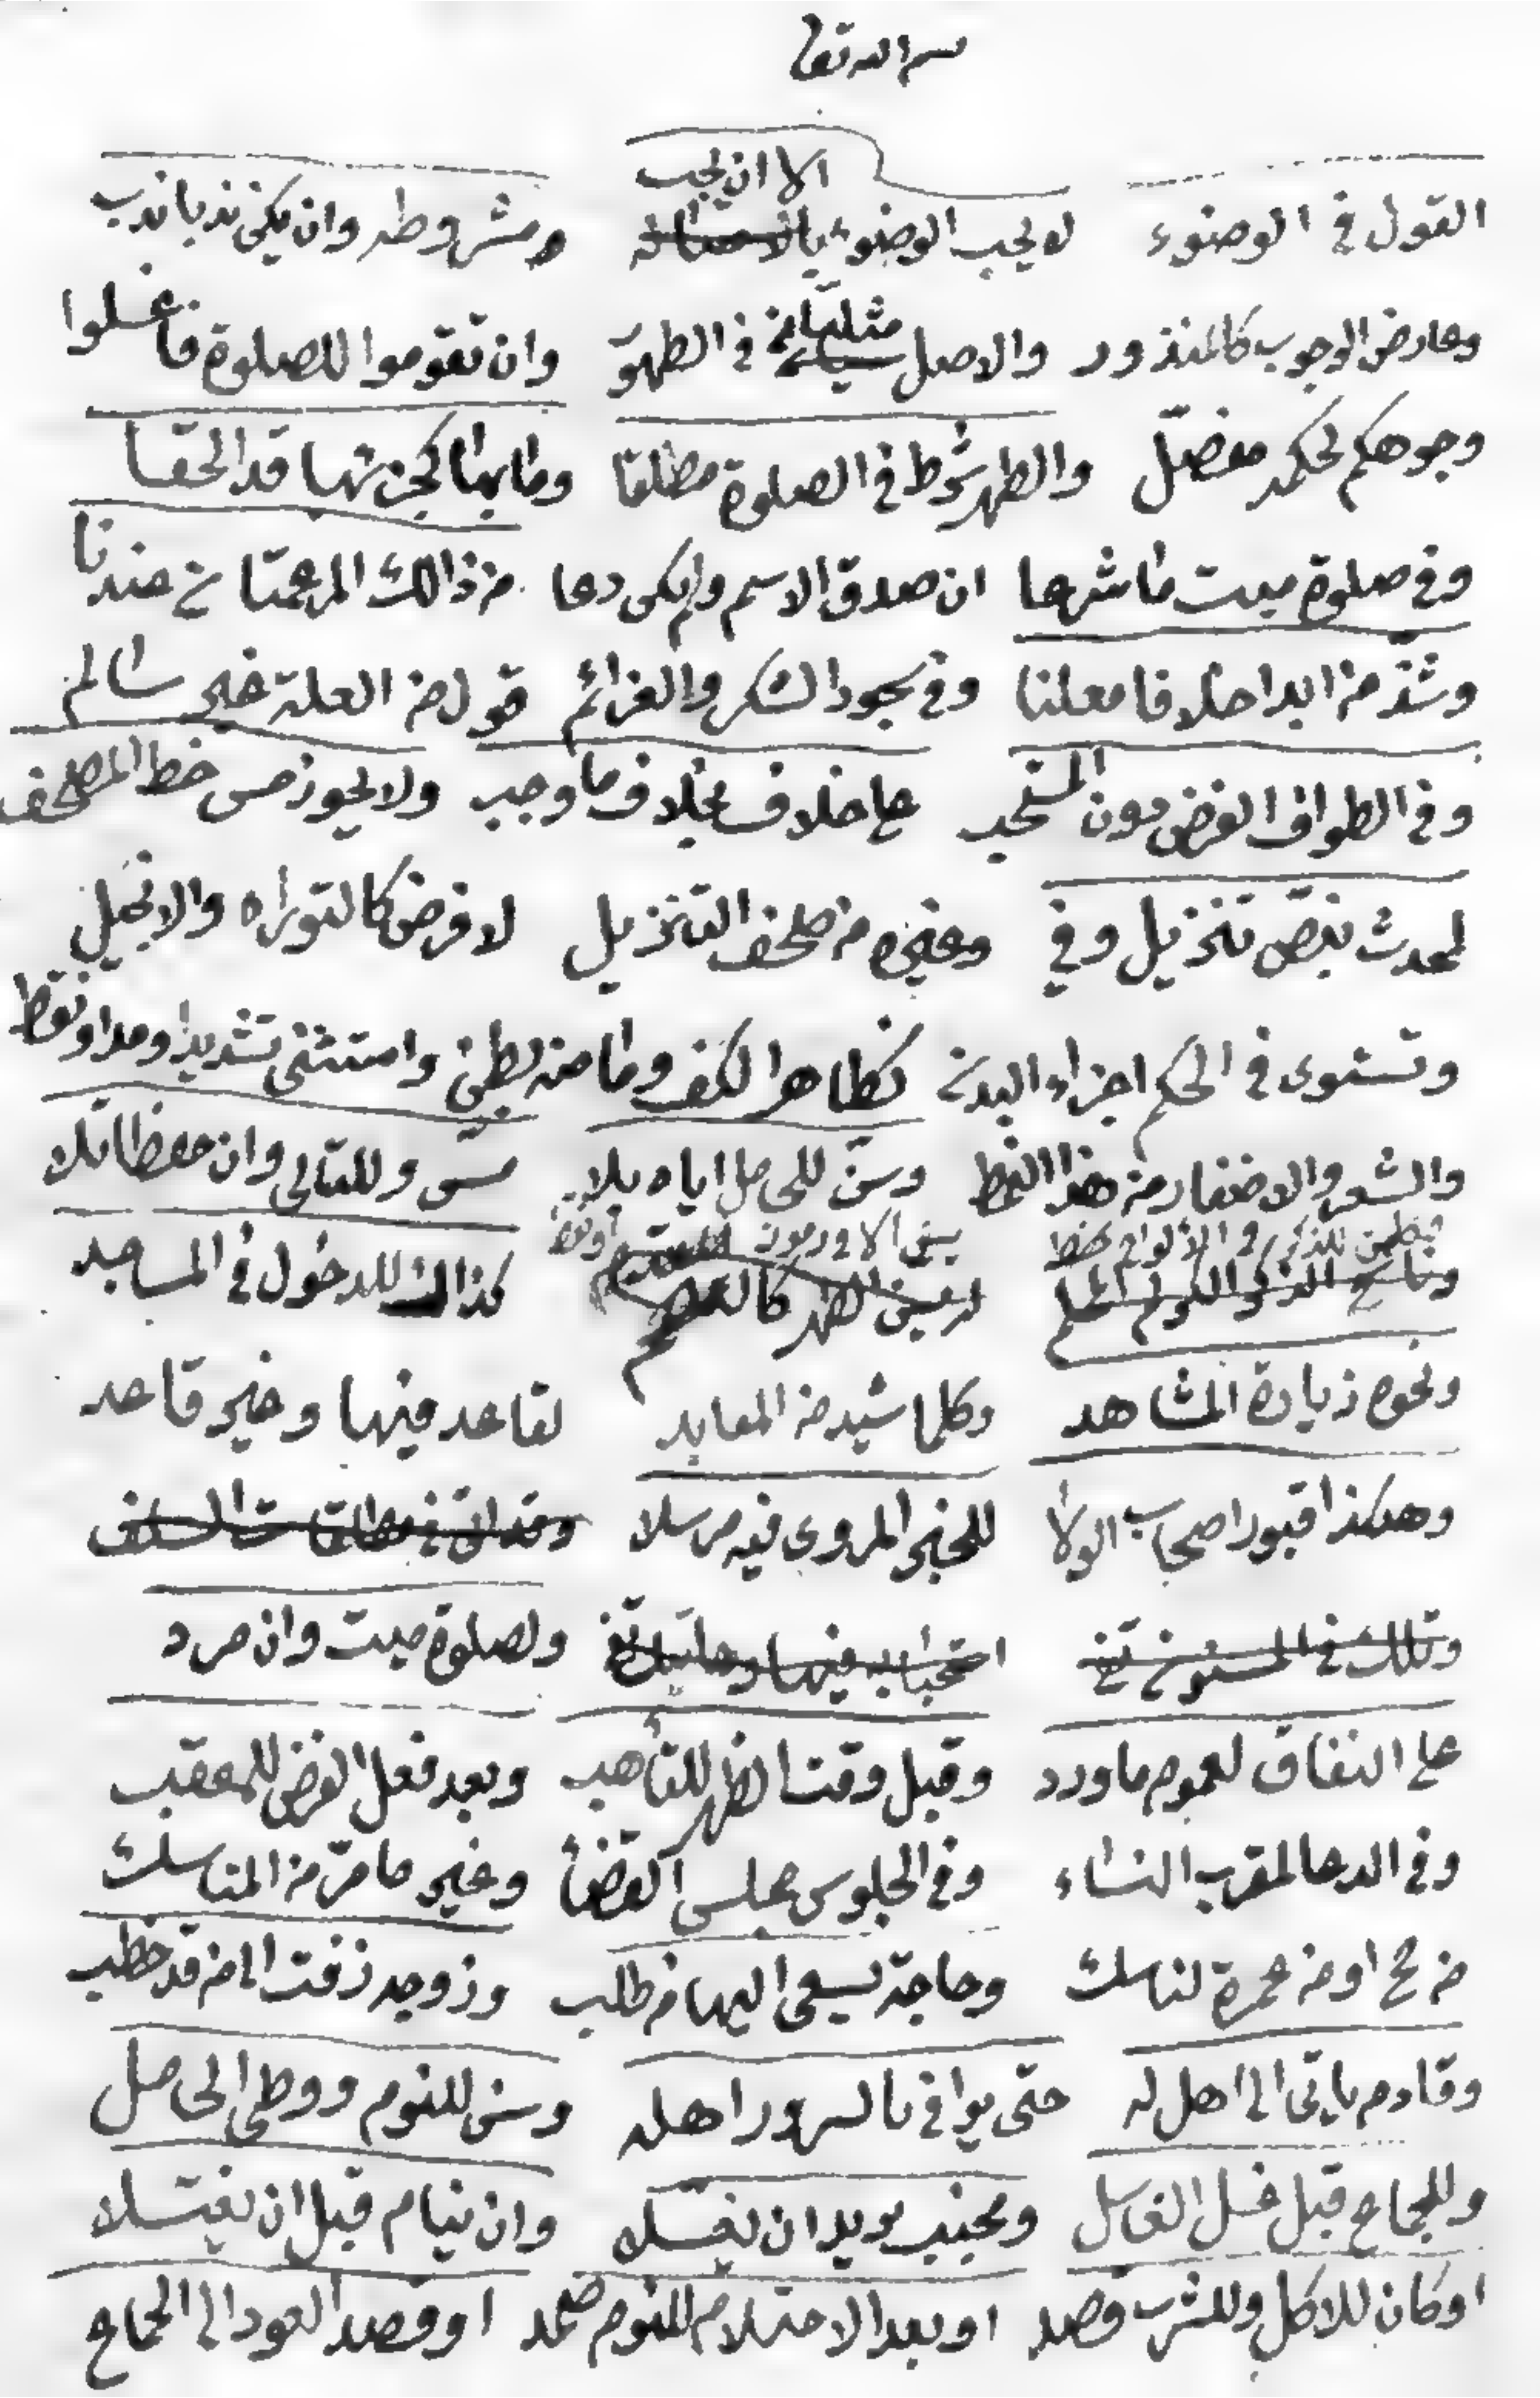 بسم الله تعا
الا ان يجب
القول في الوضوء لا يجب الوضوء بالاصاله مشروطه وان يكن ندبا ندب
وعارض الوجوب كالمنذور والاصل في الطهر وان تقوموا للصلوة فاغسلوا
وجوهكم لحكمه مفصل والطهر شرط في الصلوة مطلقا وما بها كجزئها قد الحقا
وفي صلوة ميت ما شرعا ان صدق الاسم ولم يكن دعا من ذالك المرغمتان عندنا
وشذ من ابدا خلافا معلنا وفي سجود الشكر والعزائم قول من العلة غير سالم
وفي الطواف الفرض دون المستحب على خلاف بخلاف ما وجب ولا يجوز مس خط المصحف
لمحدث بنص تنزيل وفي وغيره من صحف التنزيل لا فرض كالتوراه والانجيل
وتستوى في الحكم اجزاء البدن كظاهر الكف وما منه بطن واستثنى تشديدا ومدا ونقط
والشعر والاضفار من هذا النمط وسن للحامل اياه بلا مس وللتالى وان حفظا تلا
كذالك للدخول في المساجد
ونحوه زيارة المشاهد وكلما شيد من المعابد لقاعد فيها وغير قاعد
وهكذا قبور اصحاب الولا للخبر المروى فيه مرسلا
استحبابه فيها ولصلوة ميت وان مرد
على النفاق لعموم ما ورد وقبل وقت الظهر للتأهب وبعد فعل الفرض للمعقب
وفي الدعا لمقرب النساء وفي الجلوس مجلس القضا وغير ما مر من المناسك
من حج او من عمرة لناسك وحاجة يسعى اليها من طلب وزوجه زفت الى من قد خطب
وقادم ياتى الى اهل له حتى يوافى بالسرور اهله وسن للنوم ووطى الحامل
وللجماع قبل غسل الغاسل ومجنب يريد ان يغسله وان ينام قبل ان يغتسلا
او كان للاكل وللشرب قصد او بعد الاحتلام للنوم صمد او قصد العود الى الجماع